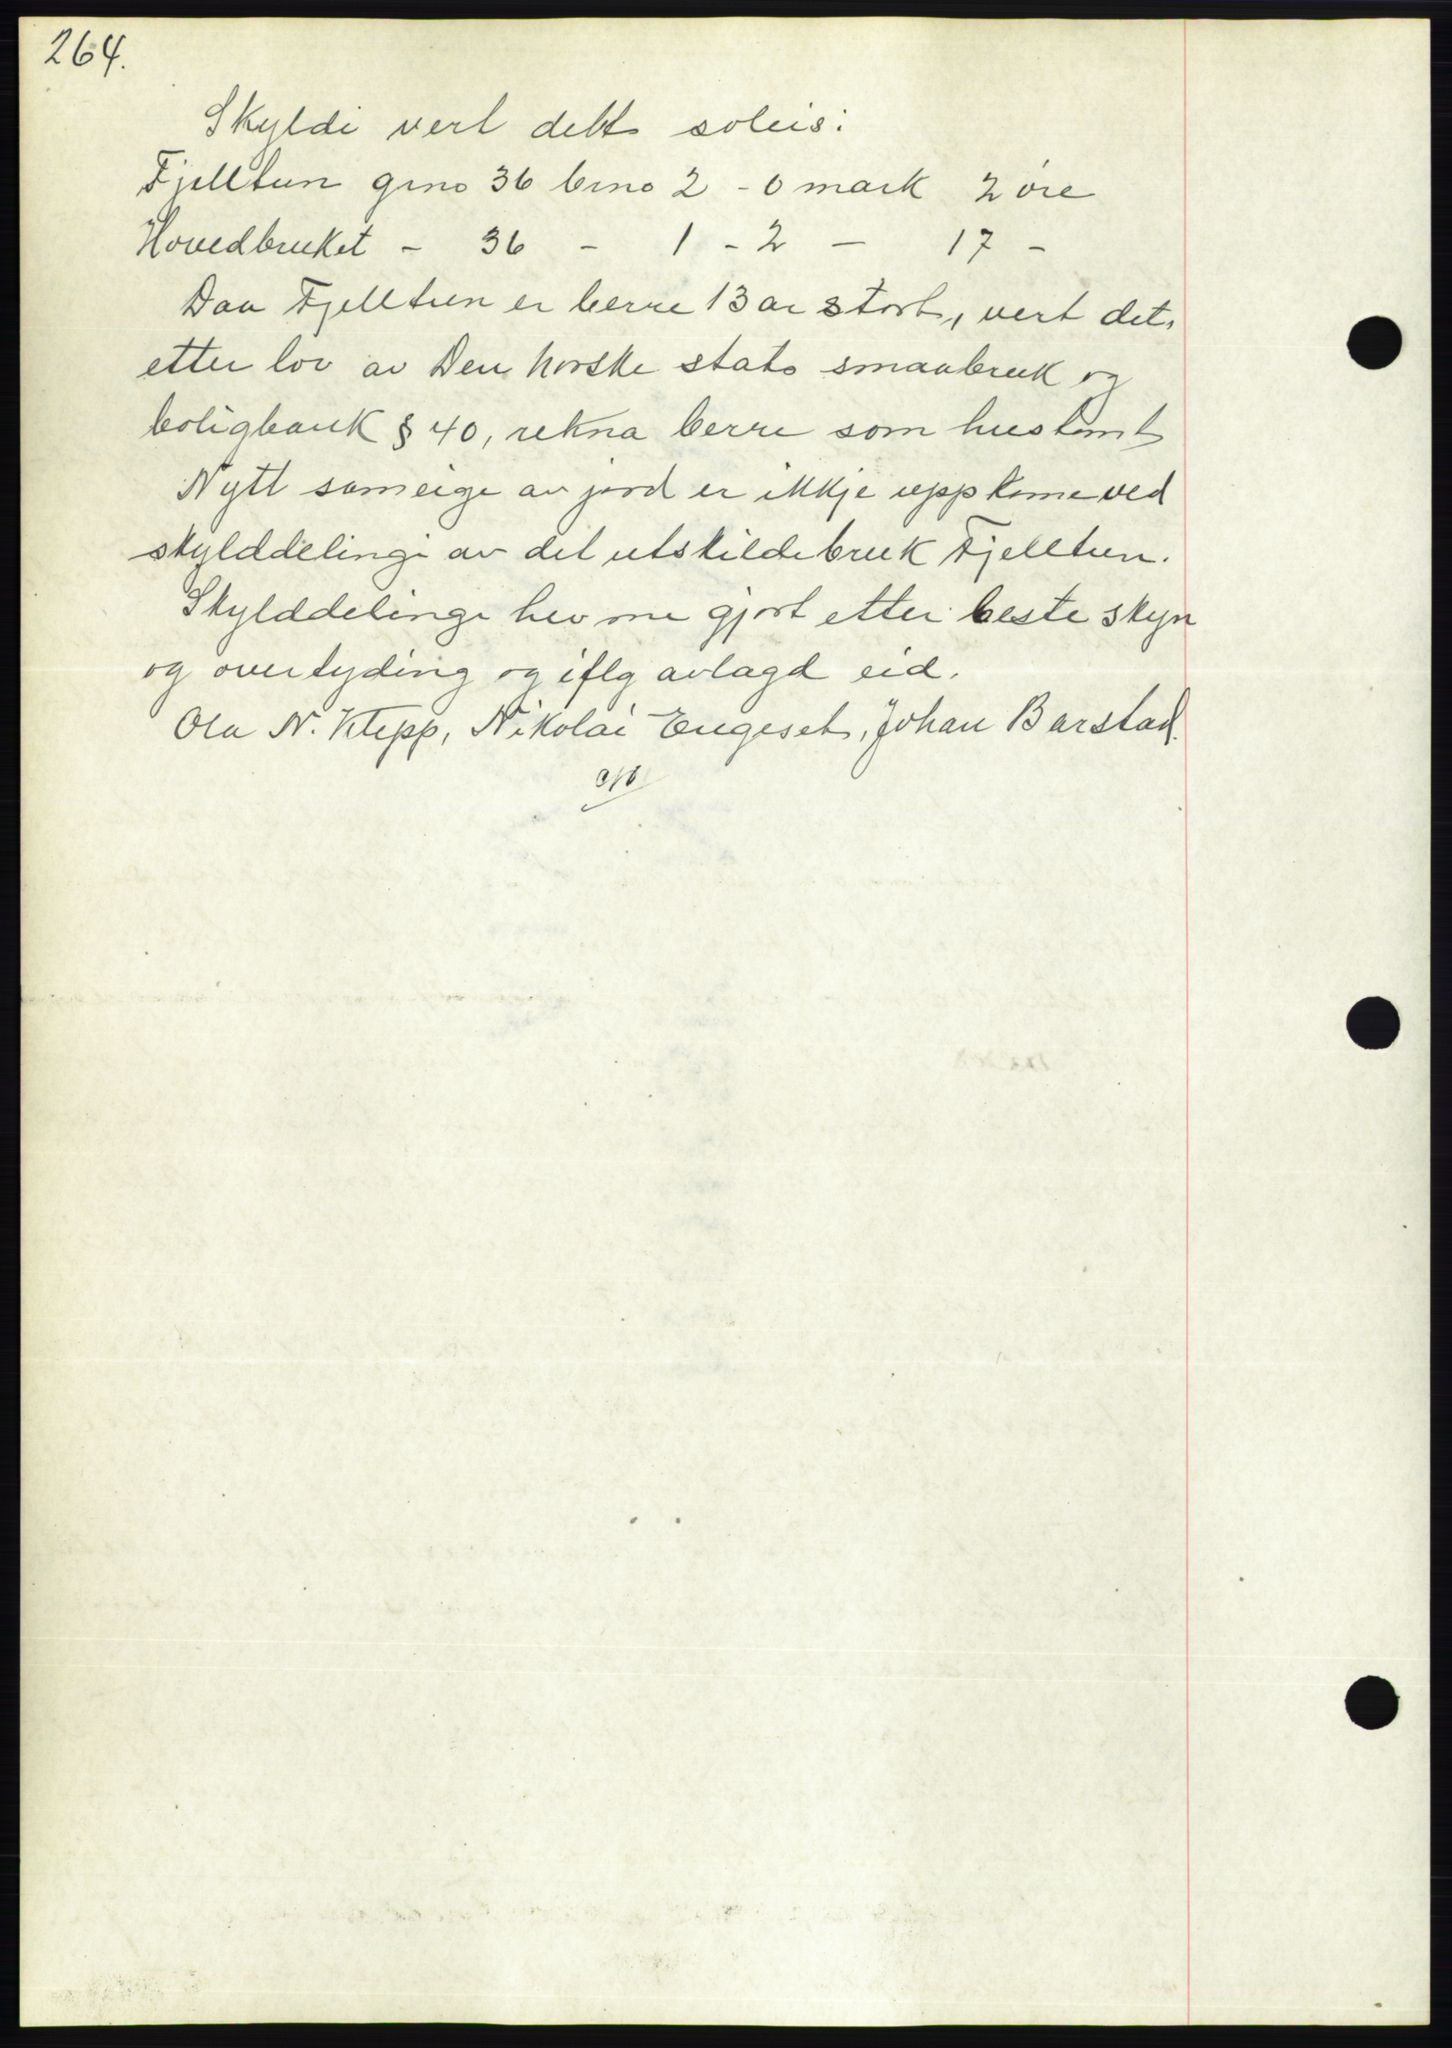 264.
Skyldi vert delt soleis:
Fjelltun gno 36 bno 2 - 0 mark 2 øre
Hovedbruket - 36 - 1 - 2 - 17 -
Daa Fjelltun er berre 13 ar stort, vert det,
etter lov av Den norske stats smaabruk og
boligbank § 40, rekna berre som hustomt
Nytt sameige av jord er ikkje uppkome ved
skylddelingi av det utskilde bruk Fjelltun.
Skylddelingi hev me gjort etter beste skyn
og overtyding og iflg avlagd eid.
Ola N. Klepp, Nikolai Engeset, Johan Barstad.